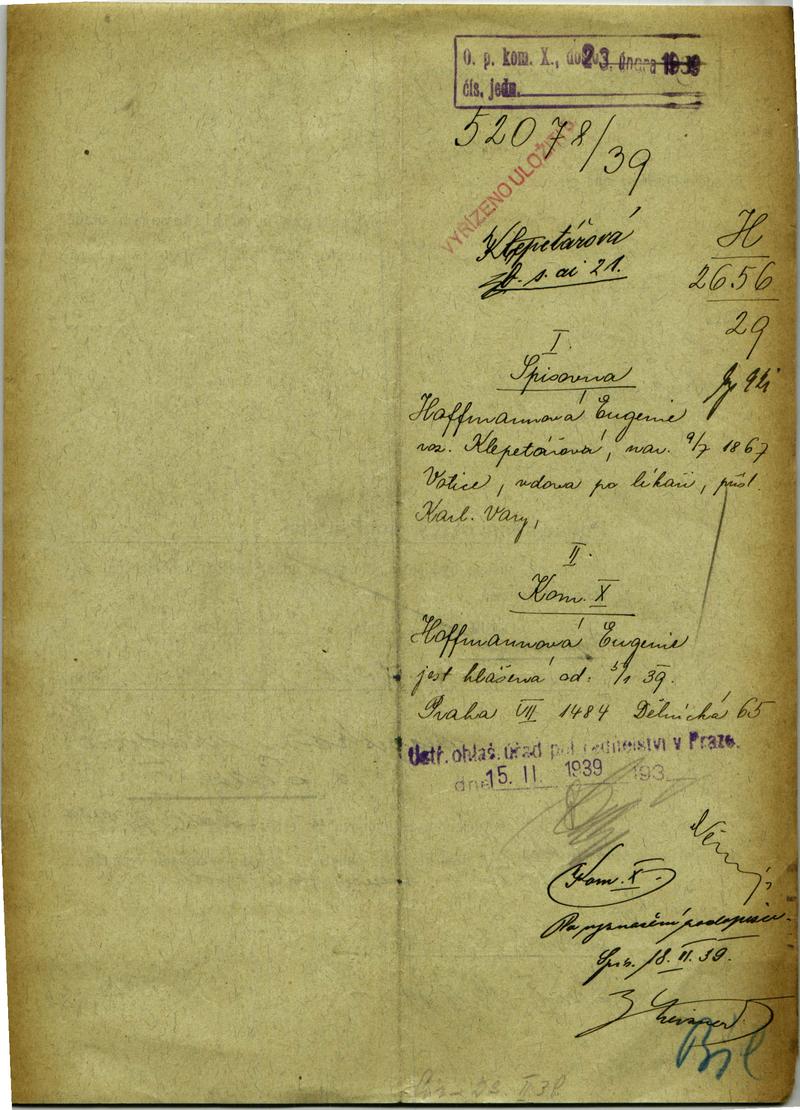 O. p. kom. X., došlo 23. února 1939
čís. jedn.
52078/39
VYŘÍZENO ULOŽITI
Klepetářová
H
2656
29
I.
Spisovna
Hoffmannová Eugenie
roz. Klepetářová, nar. 9/7 1867
Votice, vdova po lékaři, přísl.
Karl. Vary,
II.
Kom. X
Hoffmannová Eugenie
jest hlášena od: 1 39.
Praha VII 1484 Dělnická 65
Ústř. ohlaš. úřad pol. ředitelství v Praze.
dne 15. II. 1939 193
Kom. X.
Po vyznačení podopisu
Spis. 18. II. 39.